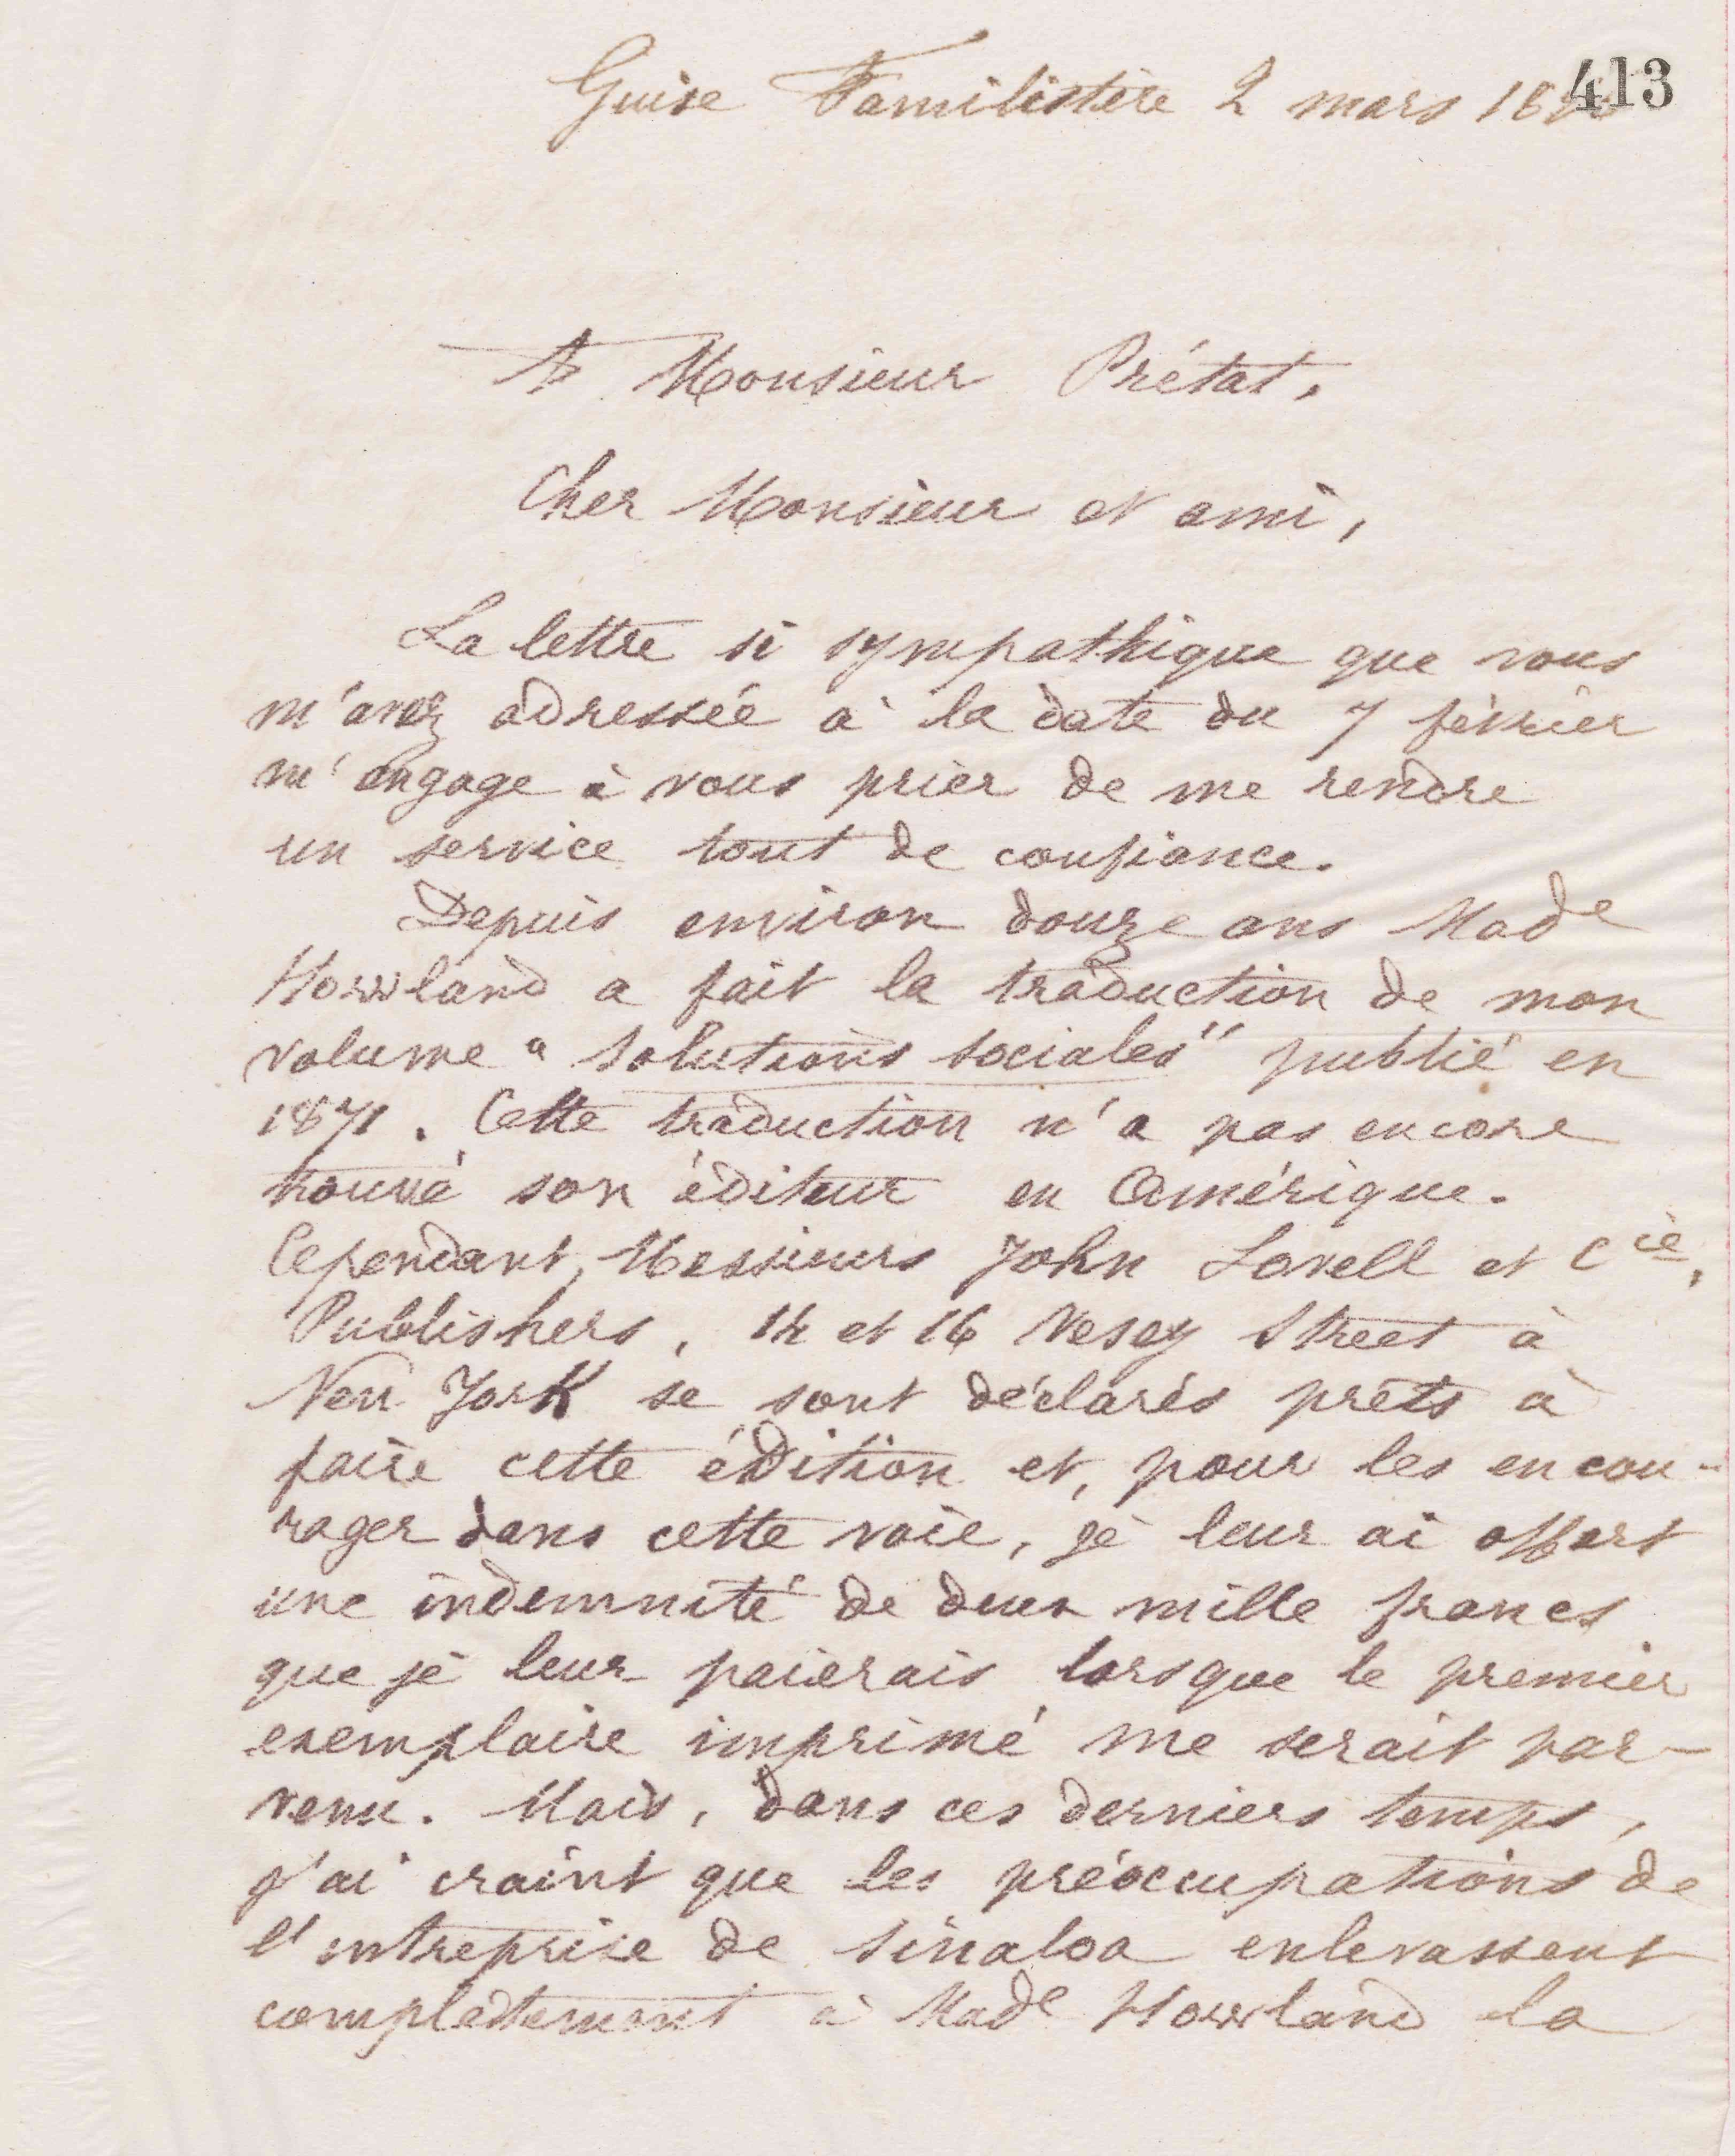 Guise Familistère 2 mars 18
413
A Monsieur Prétat,
Cher Monsieur et ami,
La lettre si sympathique que vous
m'avez adressée à la date du 7 février
m'engage à vous prier de me rendre
un service tout de confiance.
Depuis environ douze ans Made
Howland a fait la traduction de mon
volume "Solutions sociales" publié en
1871. Cette traduction n'a pas encore
trouvé son éditeur en Amérique.
Cependant, Messieurs John Lovell et Cie,
Publishers, 14 et 16 Vesey Street à
New York se sont déclarés prêts à
faire cette édition et, pour les encou-
rager dans cette voie, je leur ai offert
une indemnité de deux mille francs
que je leur paierais lorsque le premier
exemplaire imprimé me serait par-
venu. Mais, dans ces derniers temps,
j'ai craint que les préoccupations de
l'entreprise de Sinaloa enlevassent
complètement à Made Howland la